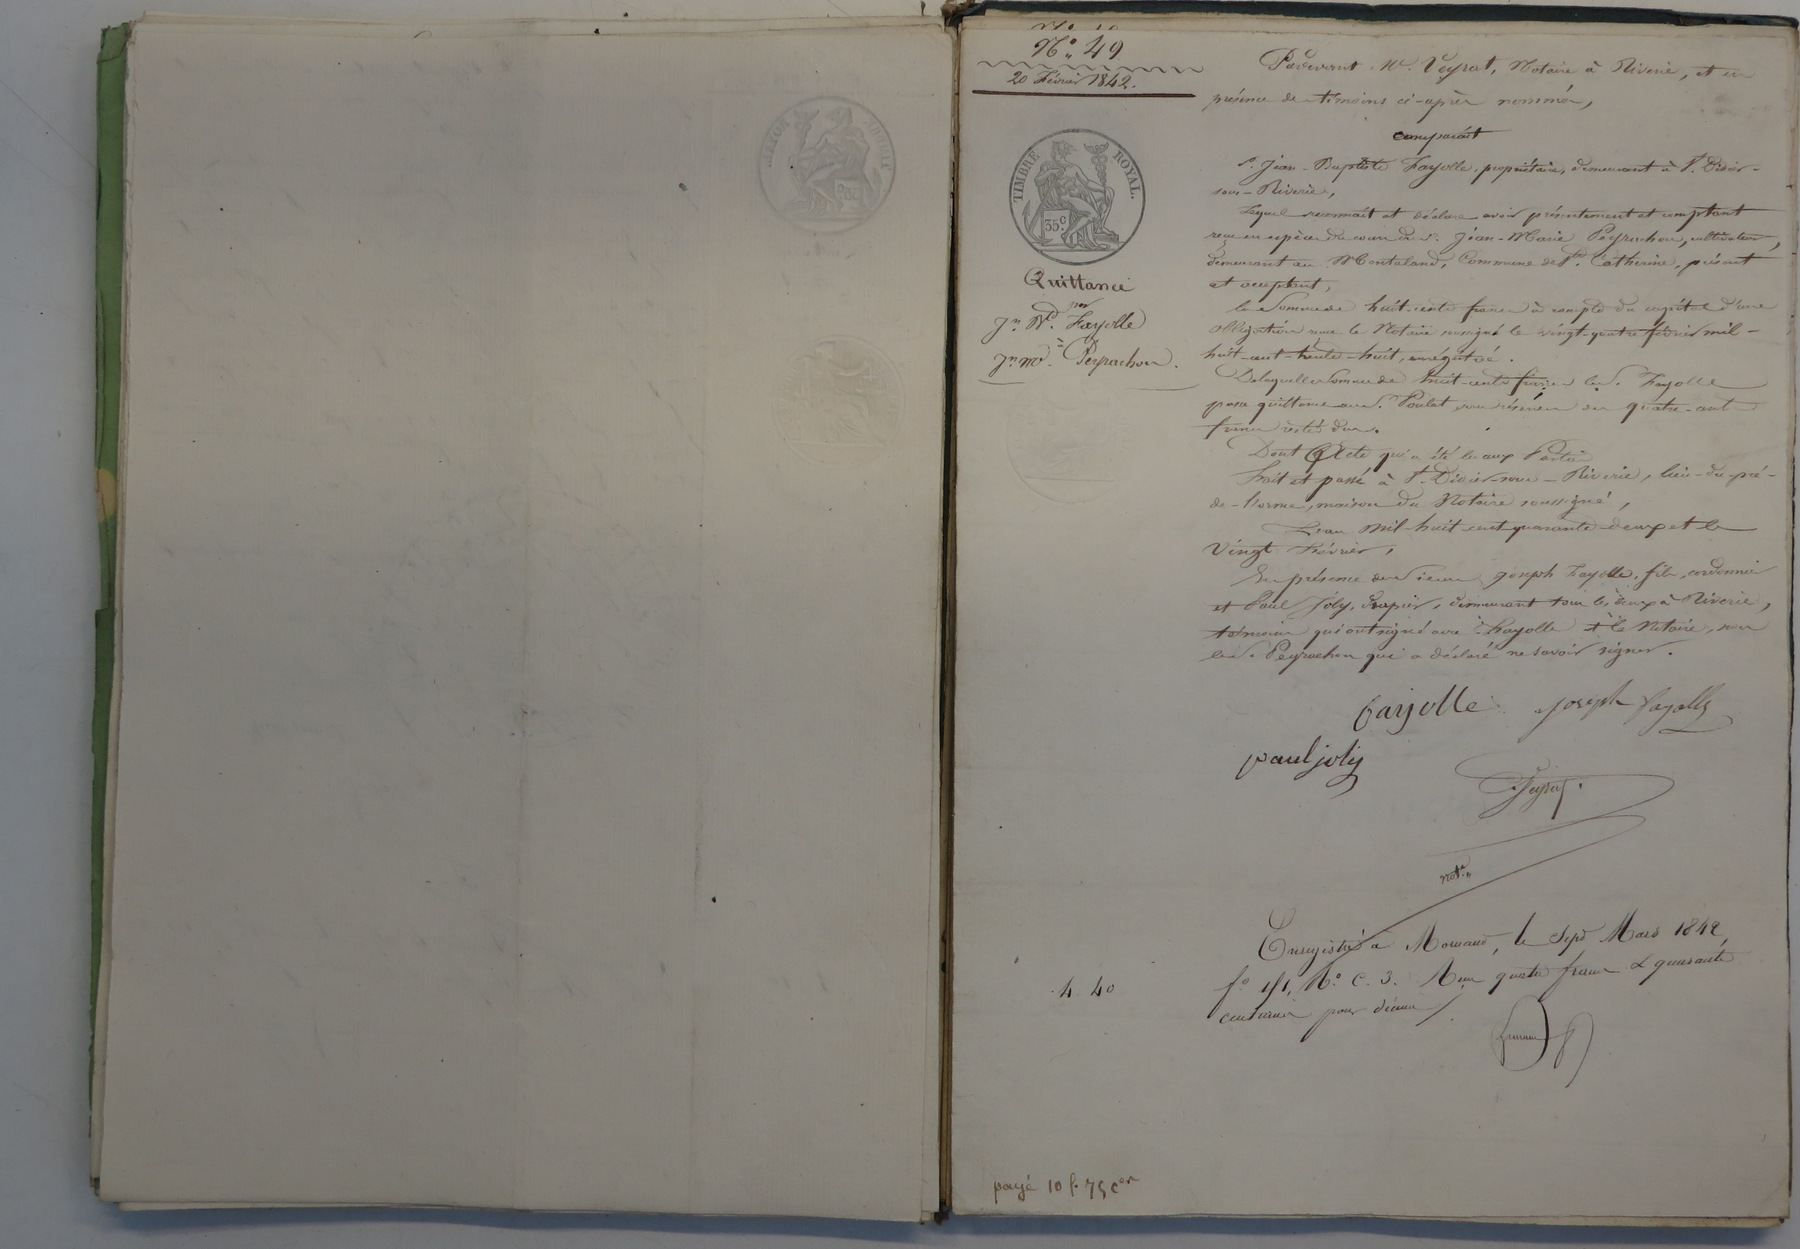 N.° 49
20 Février 1842.
TIMBRE ROYAL.
35 c
Quittance
par
Jn. Bte. Fayolle
à
Jn. Me. Peyrachon.
Pardevant Me. Veyrat, Notaire à Riverie, et en
présence des témoins ci-après nommés,
comparait
Sr. Jean-Baptiste Fayolle, propriétaire, demeurant à St. Didier-
sous-Riverie,
Lequel reconnait et déclare avoir présentement et comptant
reçu en espèces de cours du Sr. Jean-Marie Peyrachon, cultivateur,
demeurant au Montaland, Commune de Ste. Catherine, présent
et acceptant,
la Somme de huit-cents francs à compte du capital d'une
obligation reçue le Notaire soussigné le vingt-quatre février mil-
huit-cent-trente-huit, enrégistrée.
De laquelle Somme de huit-cents francs led. Fayolle
passe quittance aud. Poulat, sous réserve des quatre-cents
francs restés dus.
Dont Acte qui a été lu aux Parties
Fait et passé à St. Didier-sous-Riverie, lieu-du-pré-
de-l'orme, maison du Notaire soussigné,
L'an mil-huit-cent-quarante-deux et le
Vingt Février,
En présence des Sieurs Joseph Fayolle, fils, cordonnier
et Paul Joly, drapier, demeurant tous les deux à Riverie,
témoins qui ont signé avec Fayolle et le Notaire, non
led. Peyrachon qui a déclaré ne savoir signer.
Fayolle Joseph Fayolle
paul joly
Veyrat
notre.
Enregistré à Mornand, le Sept Mars 1842,
4. 40
f.° 171, R.° c. 3. Reçu quatre francs & quarante
centimes pour décime
payé 10 f. 75 c